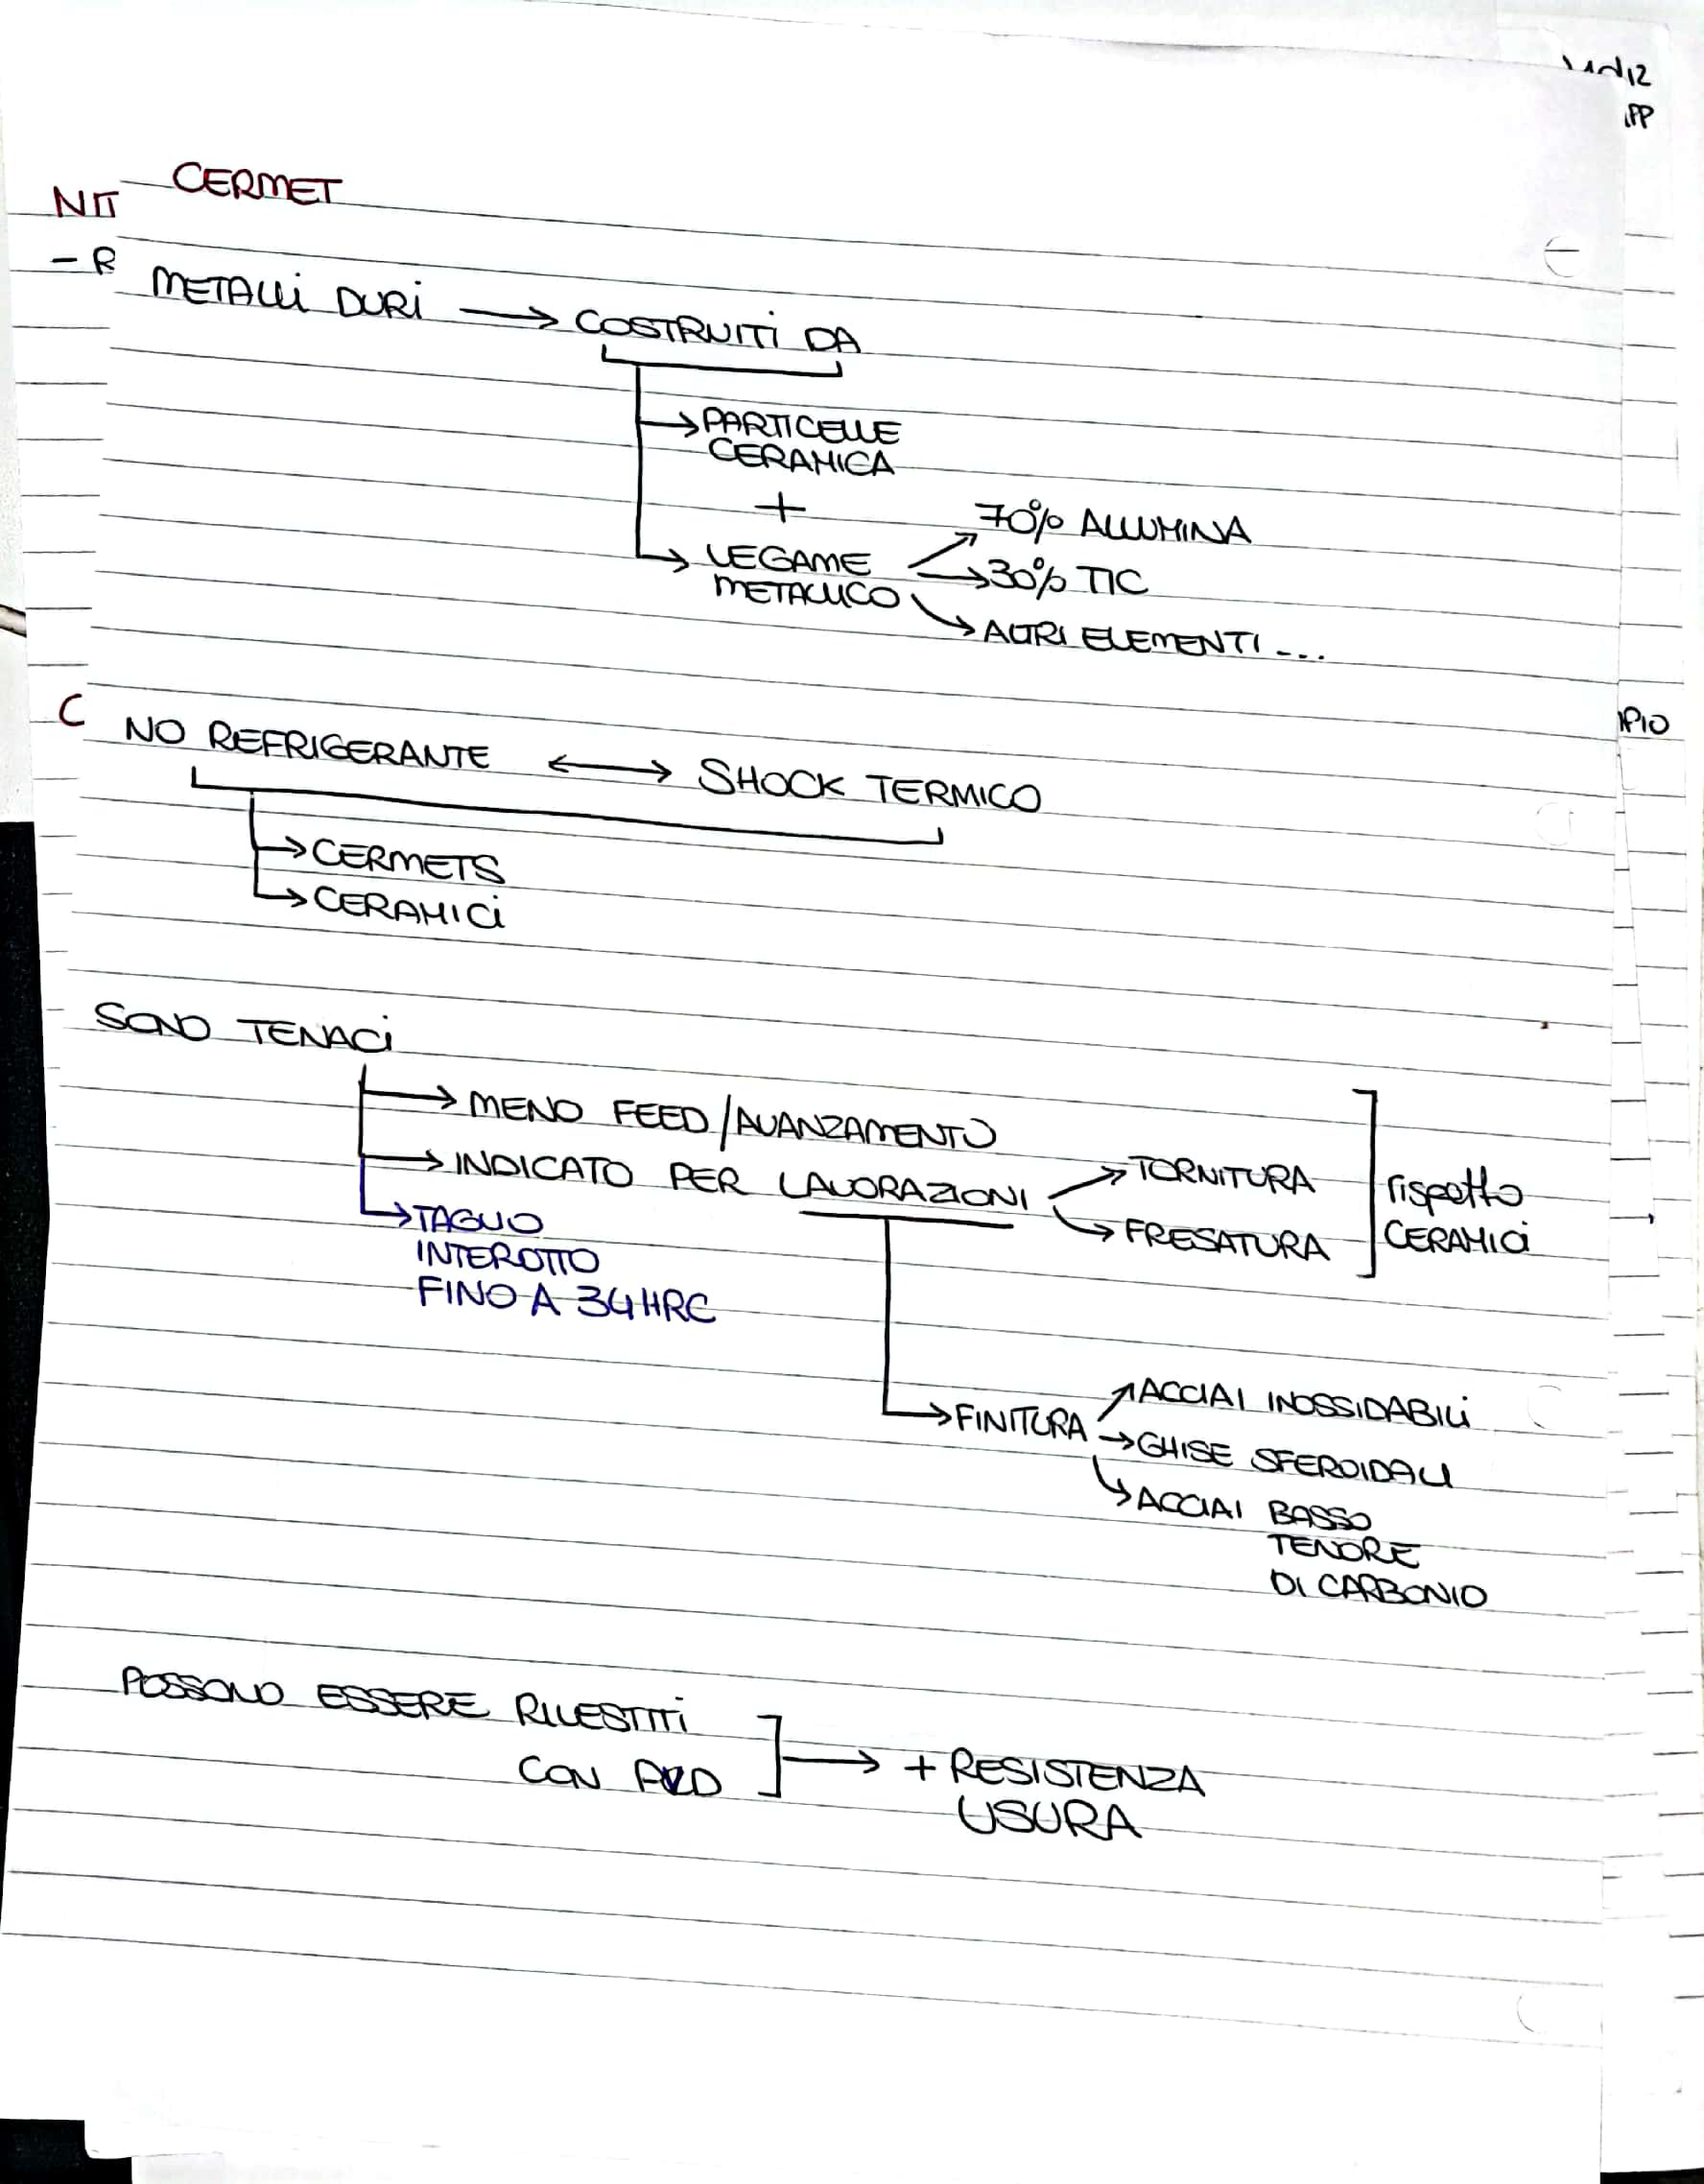 CERMET
NIT
- R
METALLI DURI → COSTRUITI DA
→ PARTICELLE
CERAMICA
+
70% ALLUMINA
→ LEGAME → 30% TIC
METALLICO
→ ALTRI ELEMENTI ...
C
NO REFRIGERANTE ↔ SHOCK TERMICO
→ CERMETS
→ CERAMICI
SONO TENACI
→ MENO FEED/AVANZAMENTO
→ INDICATO PER LAVORAZIONI → TORNITURA
→ FRESATURA
rispetto
CERAMICI
→ TAGLIO
INTEROTTO
FINO A 34 HRC
→ FINITURA → ACCIAI INOSSIDABILI
→ GHISE SFEROIDALI
→ ACCIAI BASSO
TENORE
DI CARBONIO
POSSONO ESSERE RIVESTITI
CON PVD → + RESISTENZA
USURA